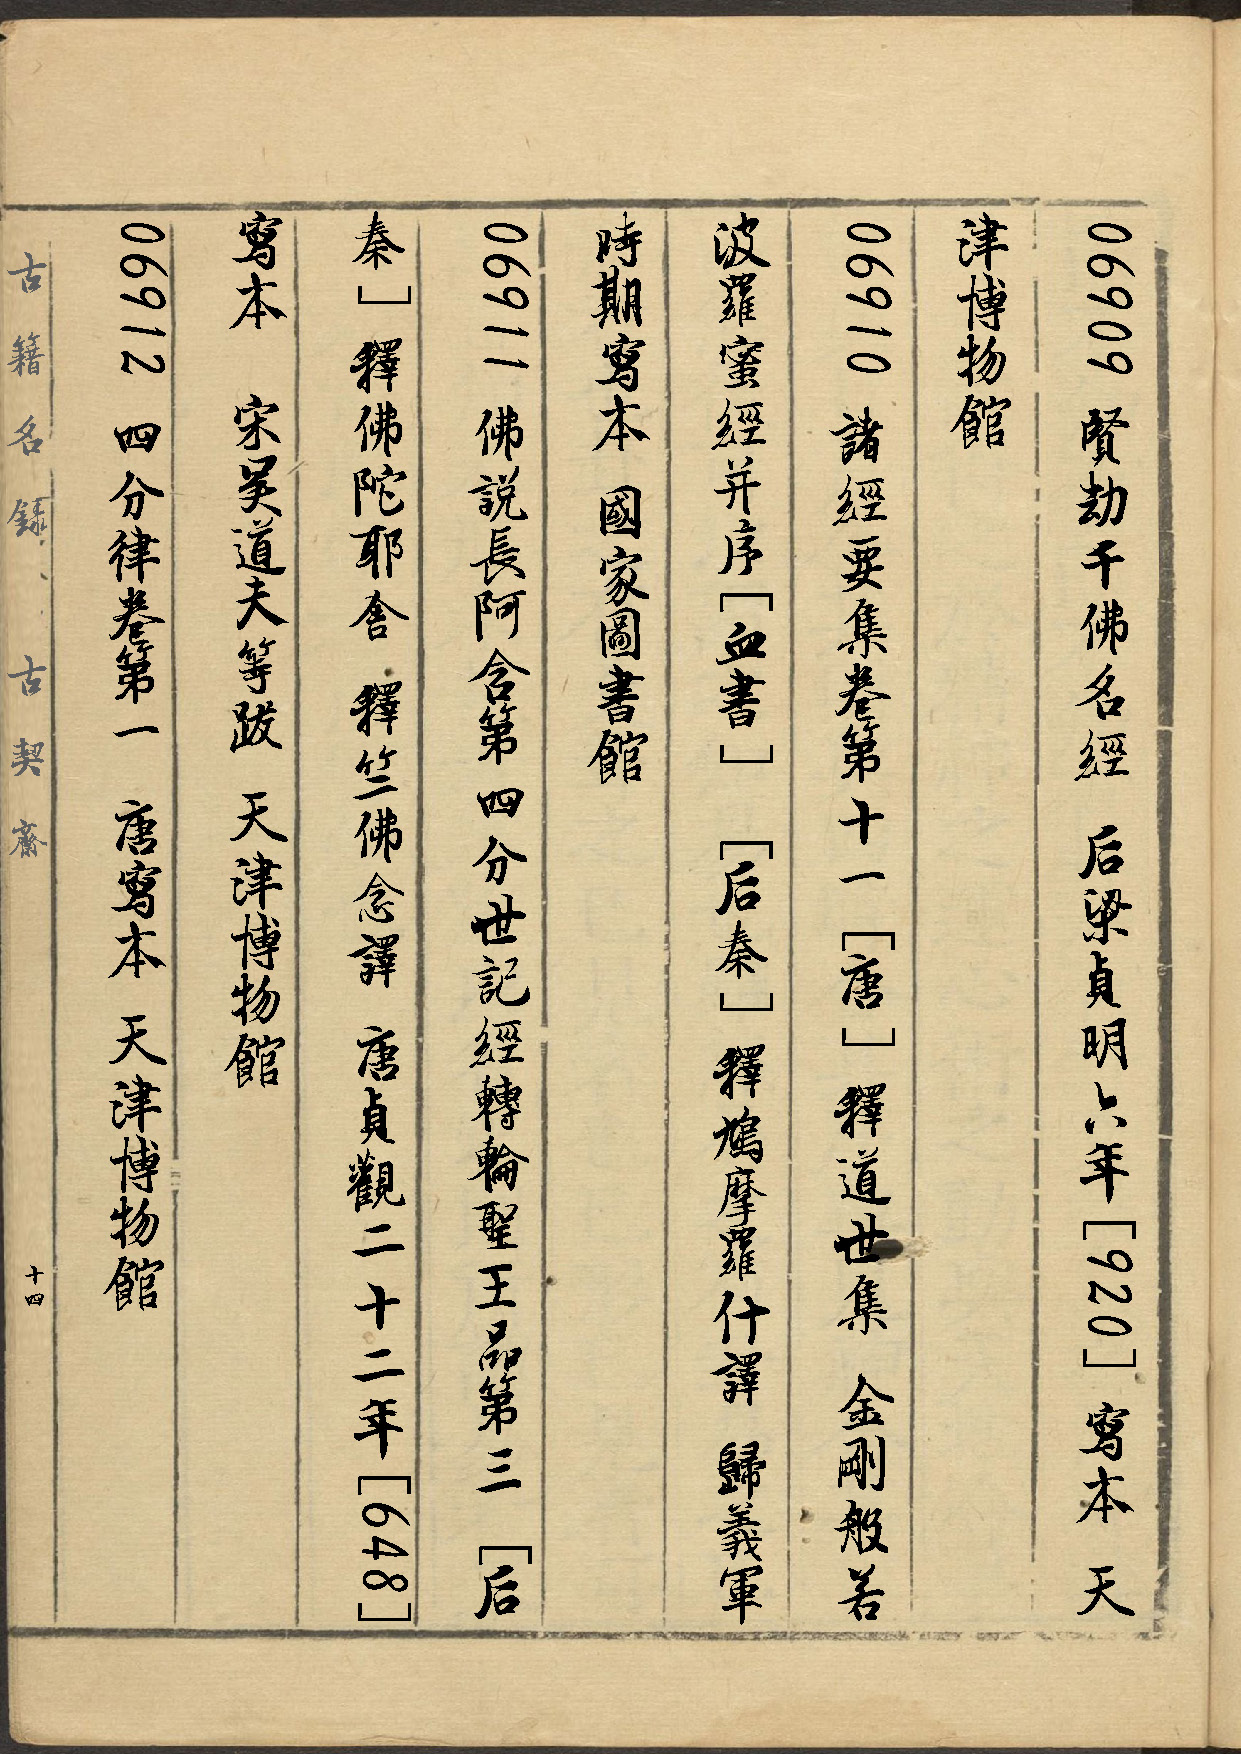 06909 賢劫千佛名經 后梁貞明六年[920]寫本 天
津博物館
06910 諸經要集卷第十一[唐]釋道世集 金剛般若
波羅蜜經并序[血書] [后秦]釋鳩摩羅什譯 歸義軍
時期寫本 國家圖書館
06911 佛説長阿含第四分世記經轉輪聖王品第三 [后
秦]釋佛陀耶舍 釋竺佛念譯 唐貞觀二十二年[648]
寫本 宋吴道夫等跋 天津博物館
06912 四分律卷第一 唐寫本 天津博物館
古籍名録、古契齋
十四